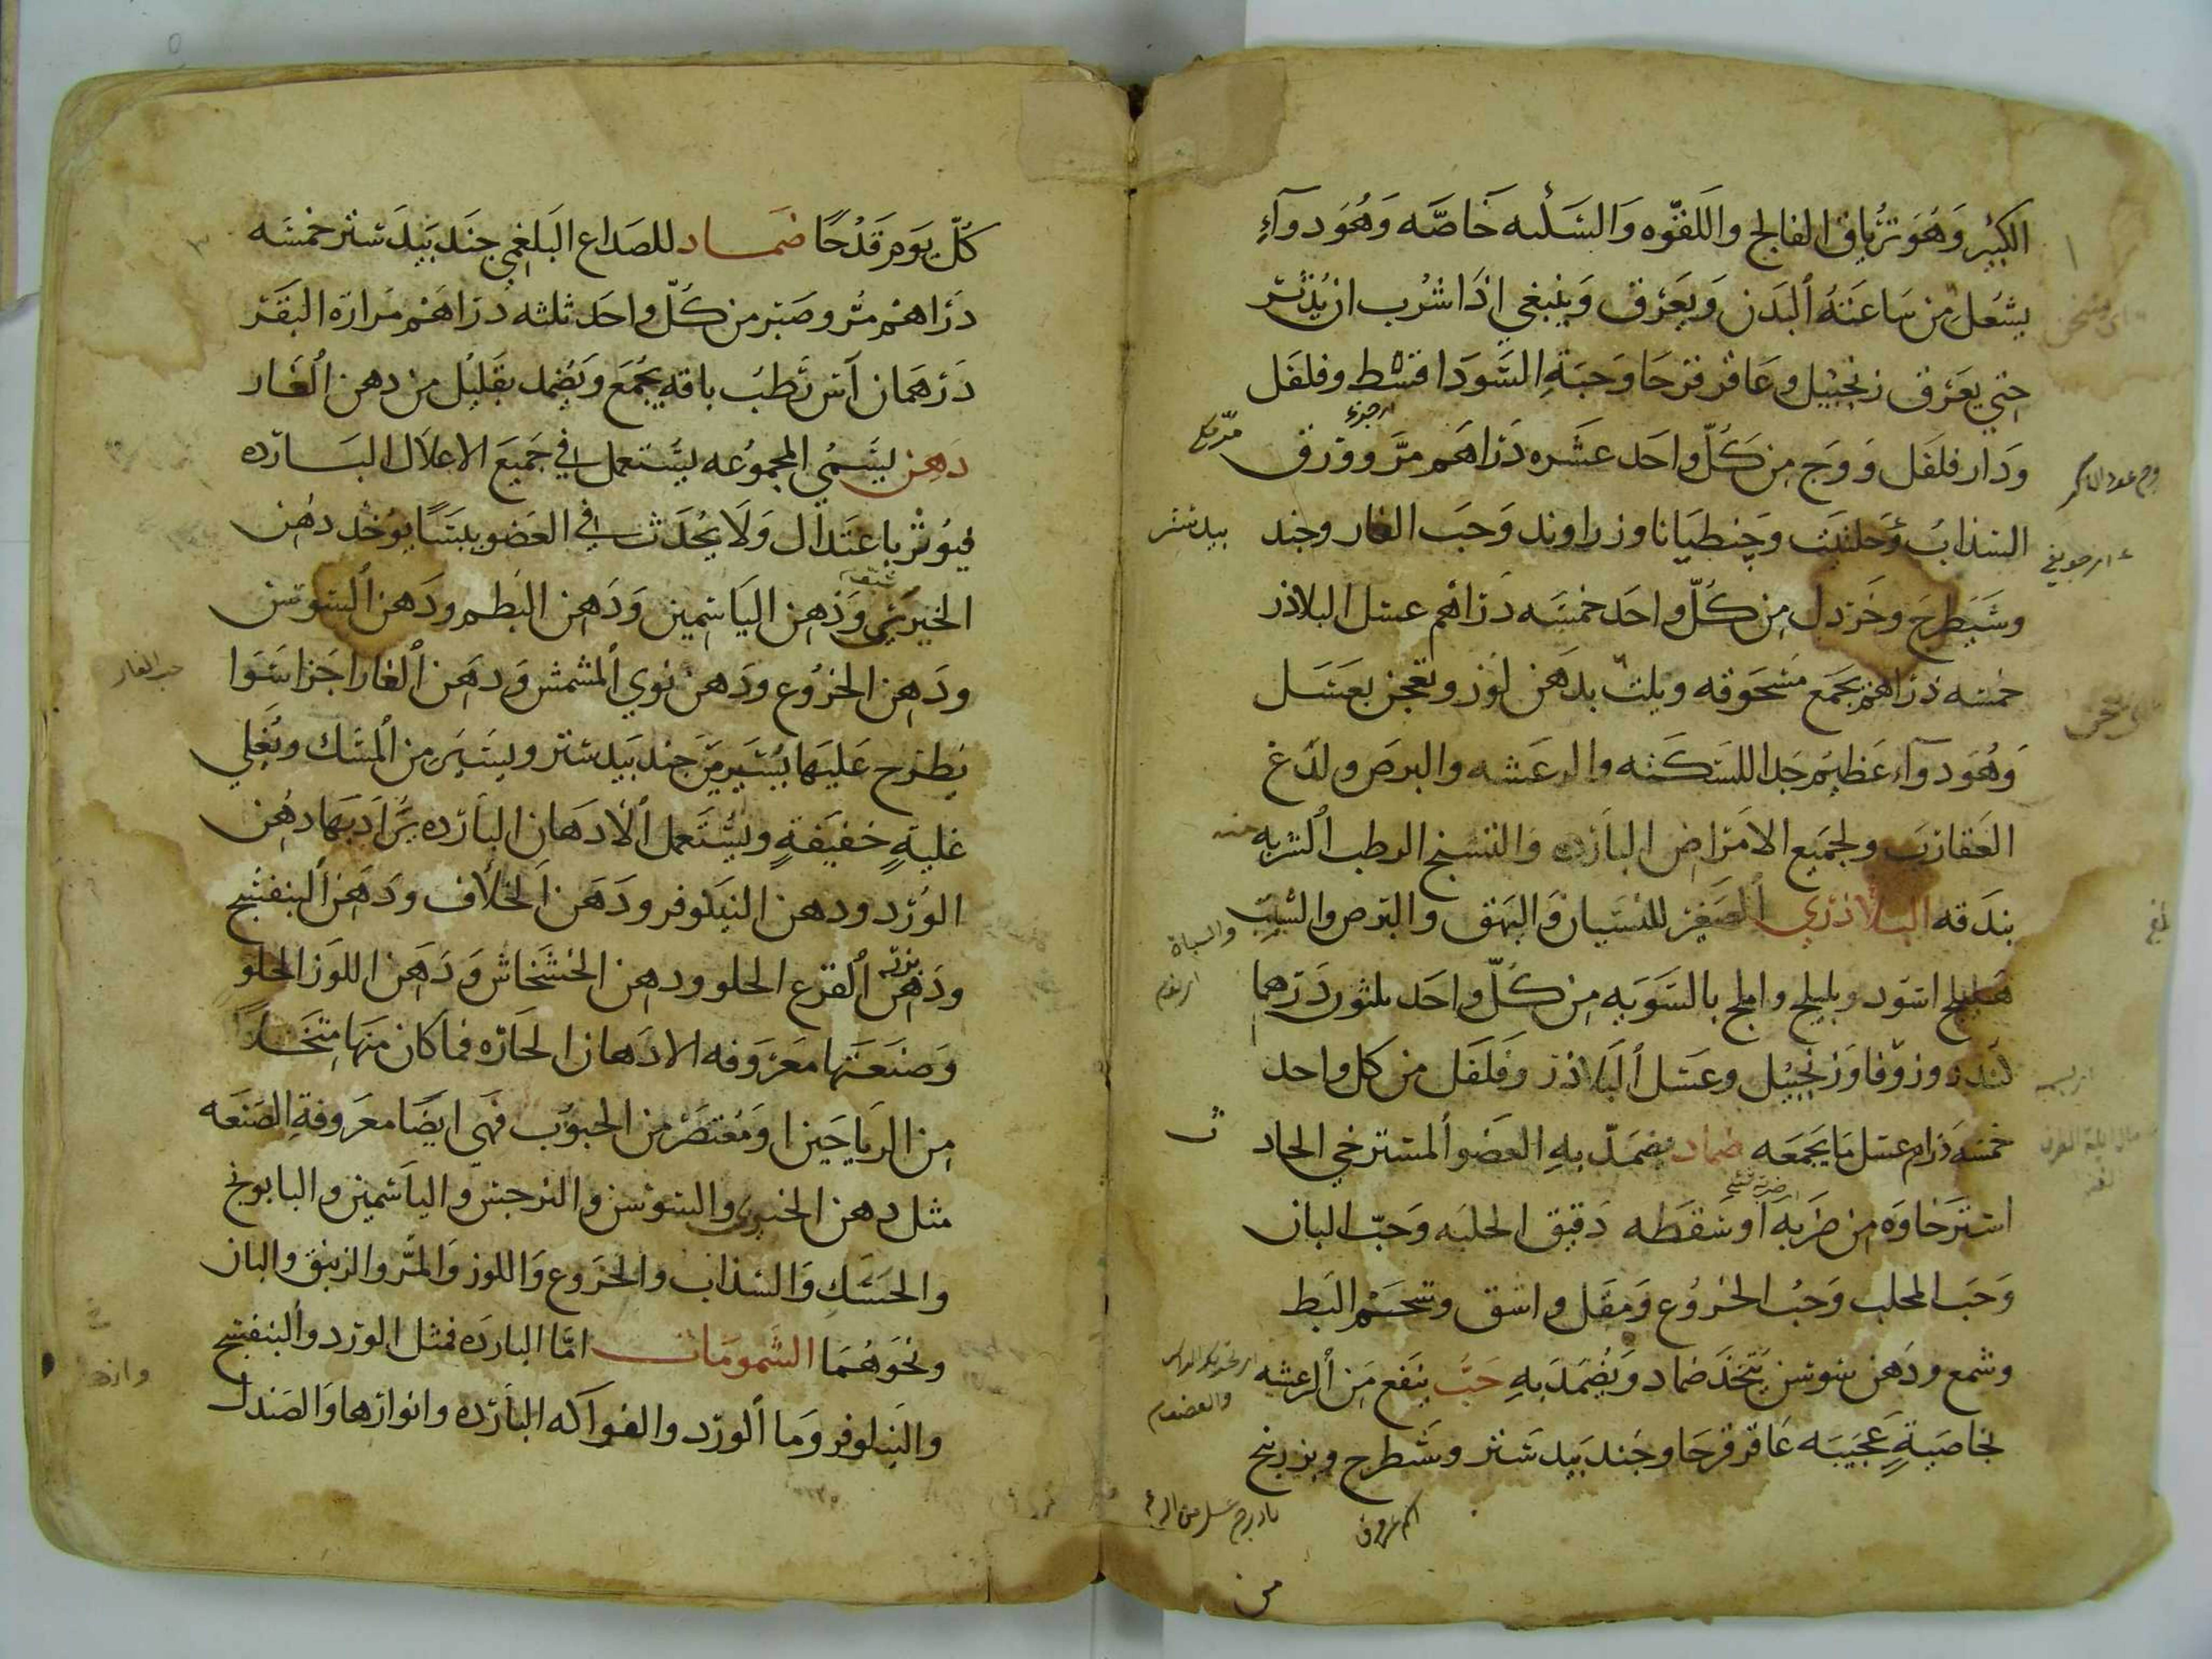 الكبير وهو ترياق الفالج واللقوه والسكته خاصه وهو دوآء
يشعل من ساعته البدن ويعرق وينبغي اذا شرب ان يدثر
حتي يعرق زنجبيل وعاقر قرحا وحبة السودا قسط وفلفل
ودار فلفل ووج من كل واحد عشره دراهم مر وورق
السذاب وحلتيث وجنطيانا وزراوند وحب الغار وجند
بيدستر
وشيطرج وخردل من كل واحد خمسه دراهم عسل البلاذر
خمسه دراهم يجمع مسحوقه ويلت بدهن لوز وتعجن بعسل
وهو دوآء عظيم جدا للسكته والرعشه والبرص ولدغ
العقارب ولجميع الامراض البارده والتشنج الرطب الشربه منه
بندقه البلاذري الصغير للنسيان والبهق والبرص والشيب
هليلج اسود وبليلج واملج بالسويه من كل واحد ثلثون درهما
كندر وزوفا وزنجبيل وعسل البلاذر وفلفل من كل واحد
خمسه دراهم عسل ما يجمعه ضماد يضمد به العضو المسترخي الحاد
استرخاوه من ضربه او سقطه دقيق الحلبه وحب البان
وحب المحلب وحب الخروع ومقل واشق وشحم البط
وشمع ودهن سوسن يتخذ ضماد ويضمد به حب ينفع من الرعشه
بخاصية عجيبه عاقر قرحا وجند بيد ستر وشطرج وبزر بنج
كل يوم قدحا ضماد للصداع البلغمي جند بيد ستر خمسه
دراهم مر وصبر من كل واحد ثلثه دراهم مرارة البقر
درهمان آس رطب باقه يجمع ويضمد بقليل من دهن الغار
دهن يسمي المجموعه يستعمل في جميع الاعلال البارده
فيوثر باعتدال ولا يحدث في العضو يبسا يوخذ دهن
الخيري ودهن الياسمين ودهن البطم ودهن السوسن
ودهن الخروع ودهن نوي المشمش ودهن الغار اجزا سوا
يطرح عليها يسير من جند بيد ستر ويسير من المسك ويغلي
غلية خفيفة ويستعمل الادهان البارده يراد بها دهن
الورد ودهن النيلوفر ودهن الخلاف ودهن البنفسج
ودهن القرع الحلو ودهن الخشخاش ودهن اللوز الحلو
وصنعتها معروفه الادهان الحاره فما كان منها متخذا
من الرياحين او معتصر من الحبوب فهي ايضا معروفة الصنعه
مثل دهن الخيري والسوسن والنرجس والياسمين والبابونج
والحسك والسذاب والخروع واللوز والمر والزنبق والبان
ونحوهما الشمومات اما البارده فمثل الورد والبنفسج
والنيلوفر وما الورد والفواكه البارده وانوارها والصندل
حب الغار